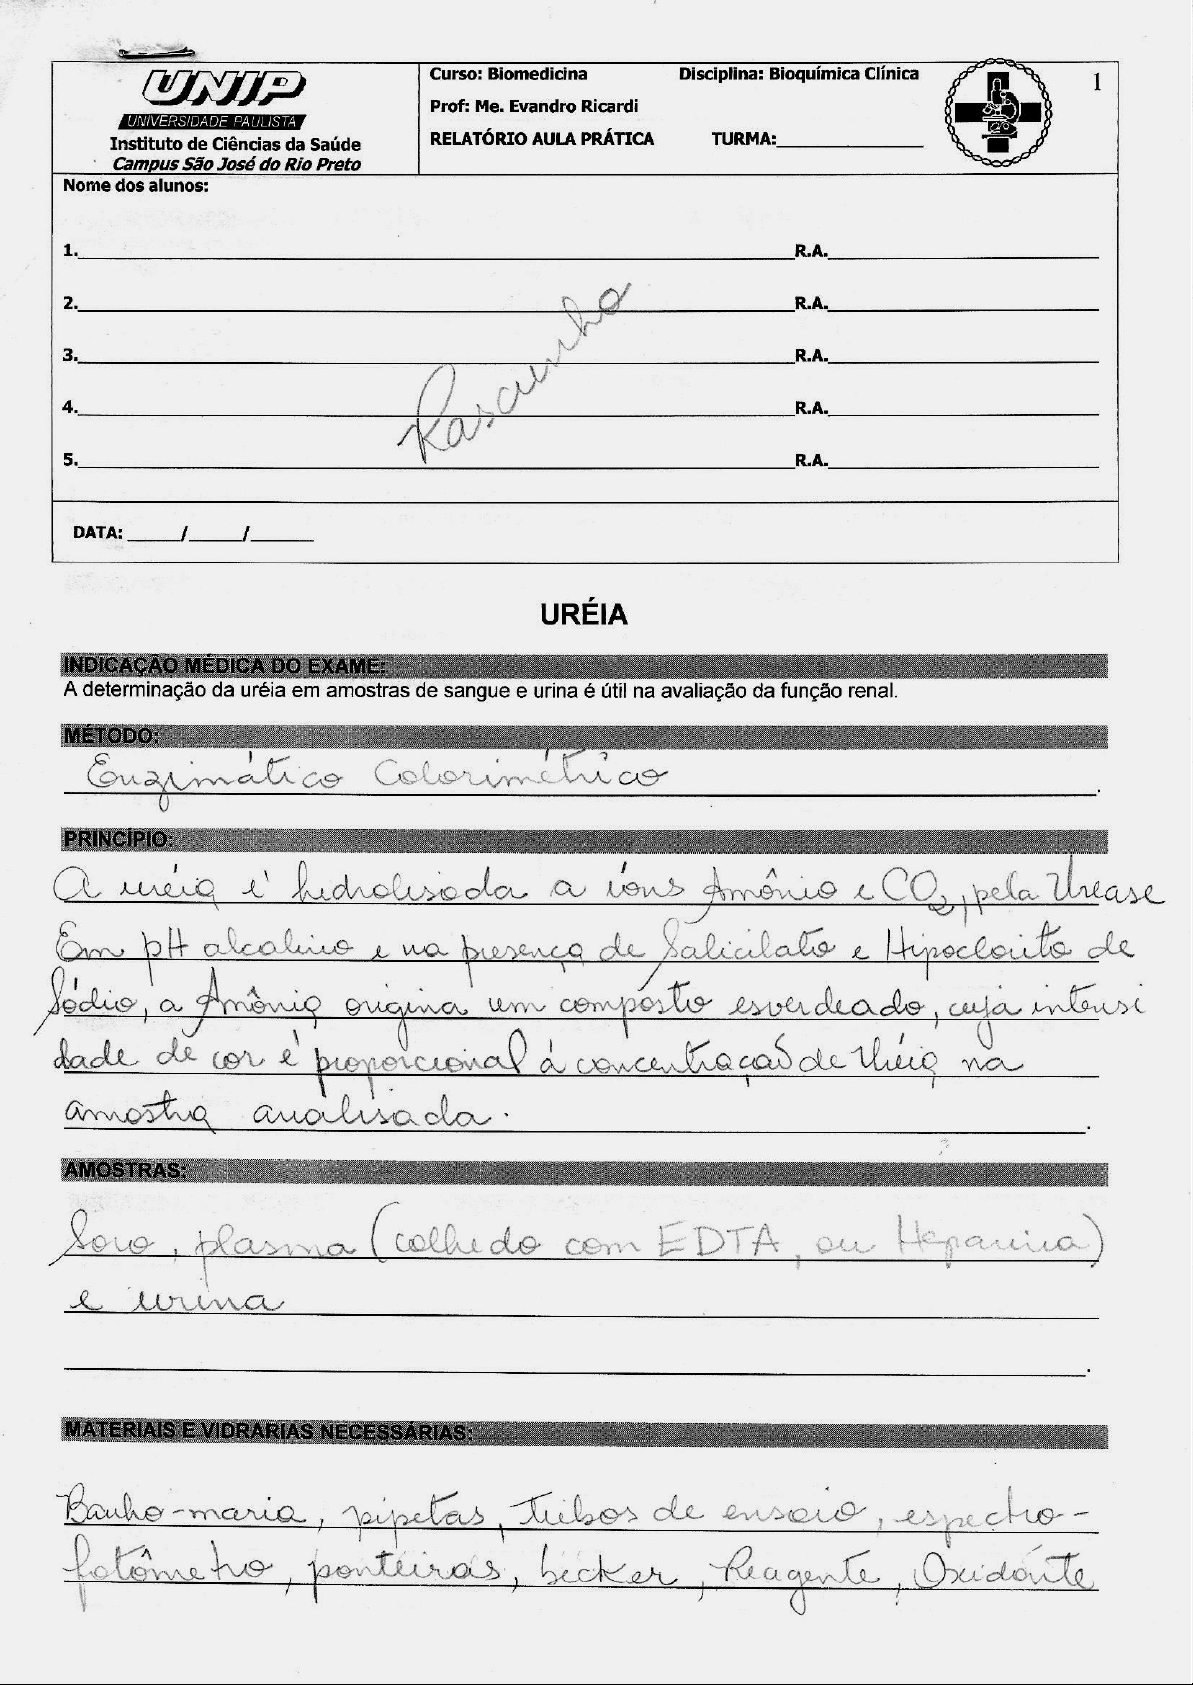 UNIP
UNIVERSIDADE PAULISTA
Instituto de Ciências da Saúde
Campus São José do Rio Preto
Curso: Biomedicina Disciplina: Bioquímica Clínica
Prof: Me. Evandro Ricardi
RELATÓRIO AULA PRÁTICA TURMA:
1
Nome dos alunos:
1. R.A.
2. R.A.
3. R.A.
4. R.A.
5. R.A.
Rascunho
DATA: / /
URÉIA
INDICAÇÃO MÉDICA DO EXAME:
A determinação da uréia em amostras de sangue e urina é útil na avaliação da função renal.
MÉTODO:
Enzimático Colorimétrico
PRINCÍPIO:
A uréia é hidrolisada a íons Amônio e CO2, pela Urease
Em pH alcalino e na presença de Salicilato e Hipoclorito de
Sódio, a Amônia origina um composto esverdeado, cuja intensi
dade de cor é proporcional à concentração de Uréia na
amostra analisada.
AMOSTRAS:
Soro, plasma (colhedo com EDTA, ou Heparina)
e urina
MATERIAIS E VIDRARIAS NECESSÁRIAS:
Banho-maria, pipetas, tubos de ensaio, espectro-
fotômetro, ponteiras, becker, Reagente, Oxidante